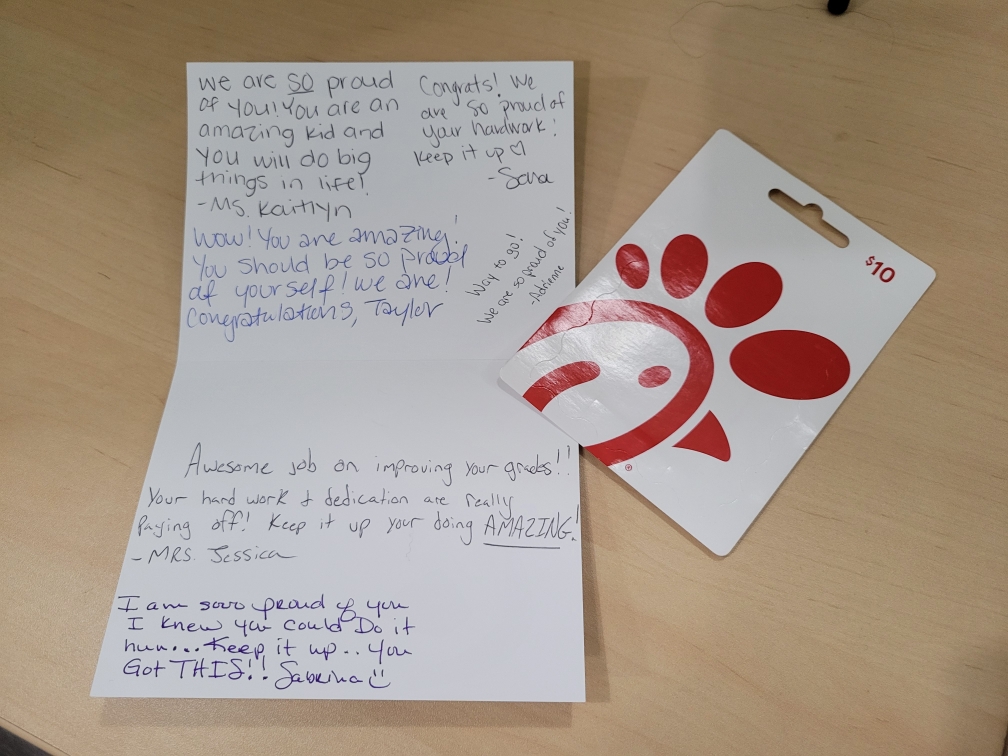 we are SO proud
of you! You are an
amazing kid and
you will do big
things in life!
-Ms. Kaitlyn
Congrats! We
are so proud of
your hardwork!
Keep it up ♡
-Sara
Wow! You are amazing!
You should be so proud
of yourself! we are!
Congratulations, Taylor
Way to go!
We are so proud of you!
-Adrienne
Awesome job on improving your grades!!
Your hard work & dedication are really
paying off! Keep it up your doing AMAZING!
- MRS. Jessica
I am sooo proud of you
I knew you could Do it
hun... Keep it up.. you
Got THIS!! Sabrina ☺
$10
®